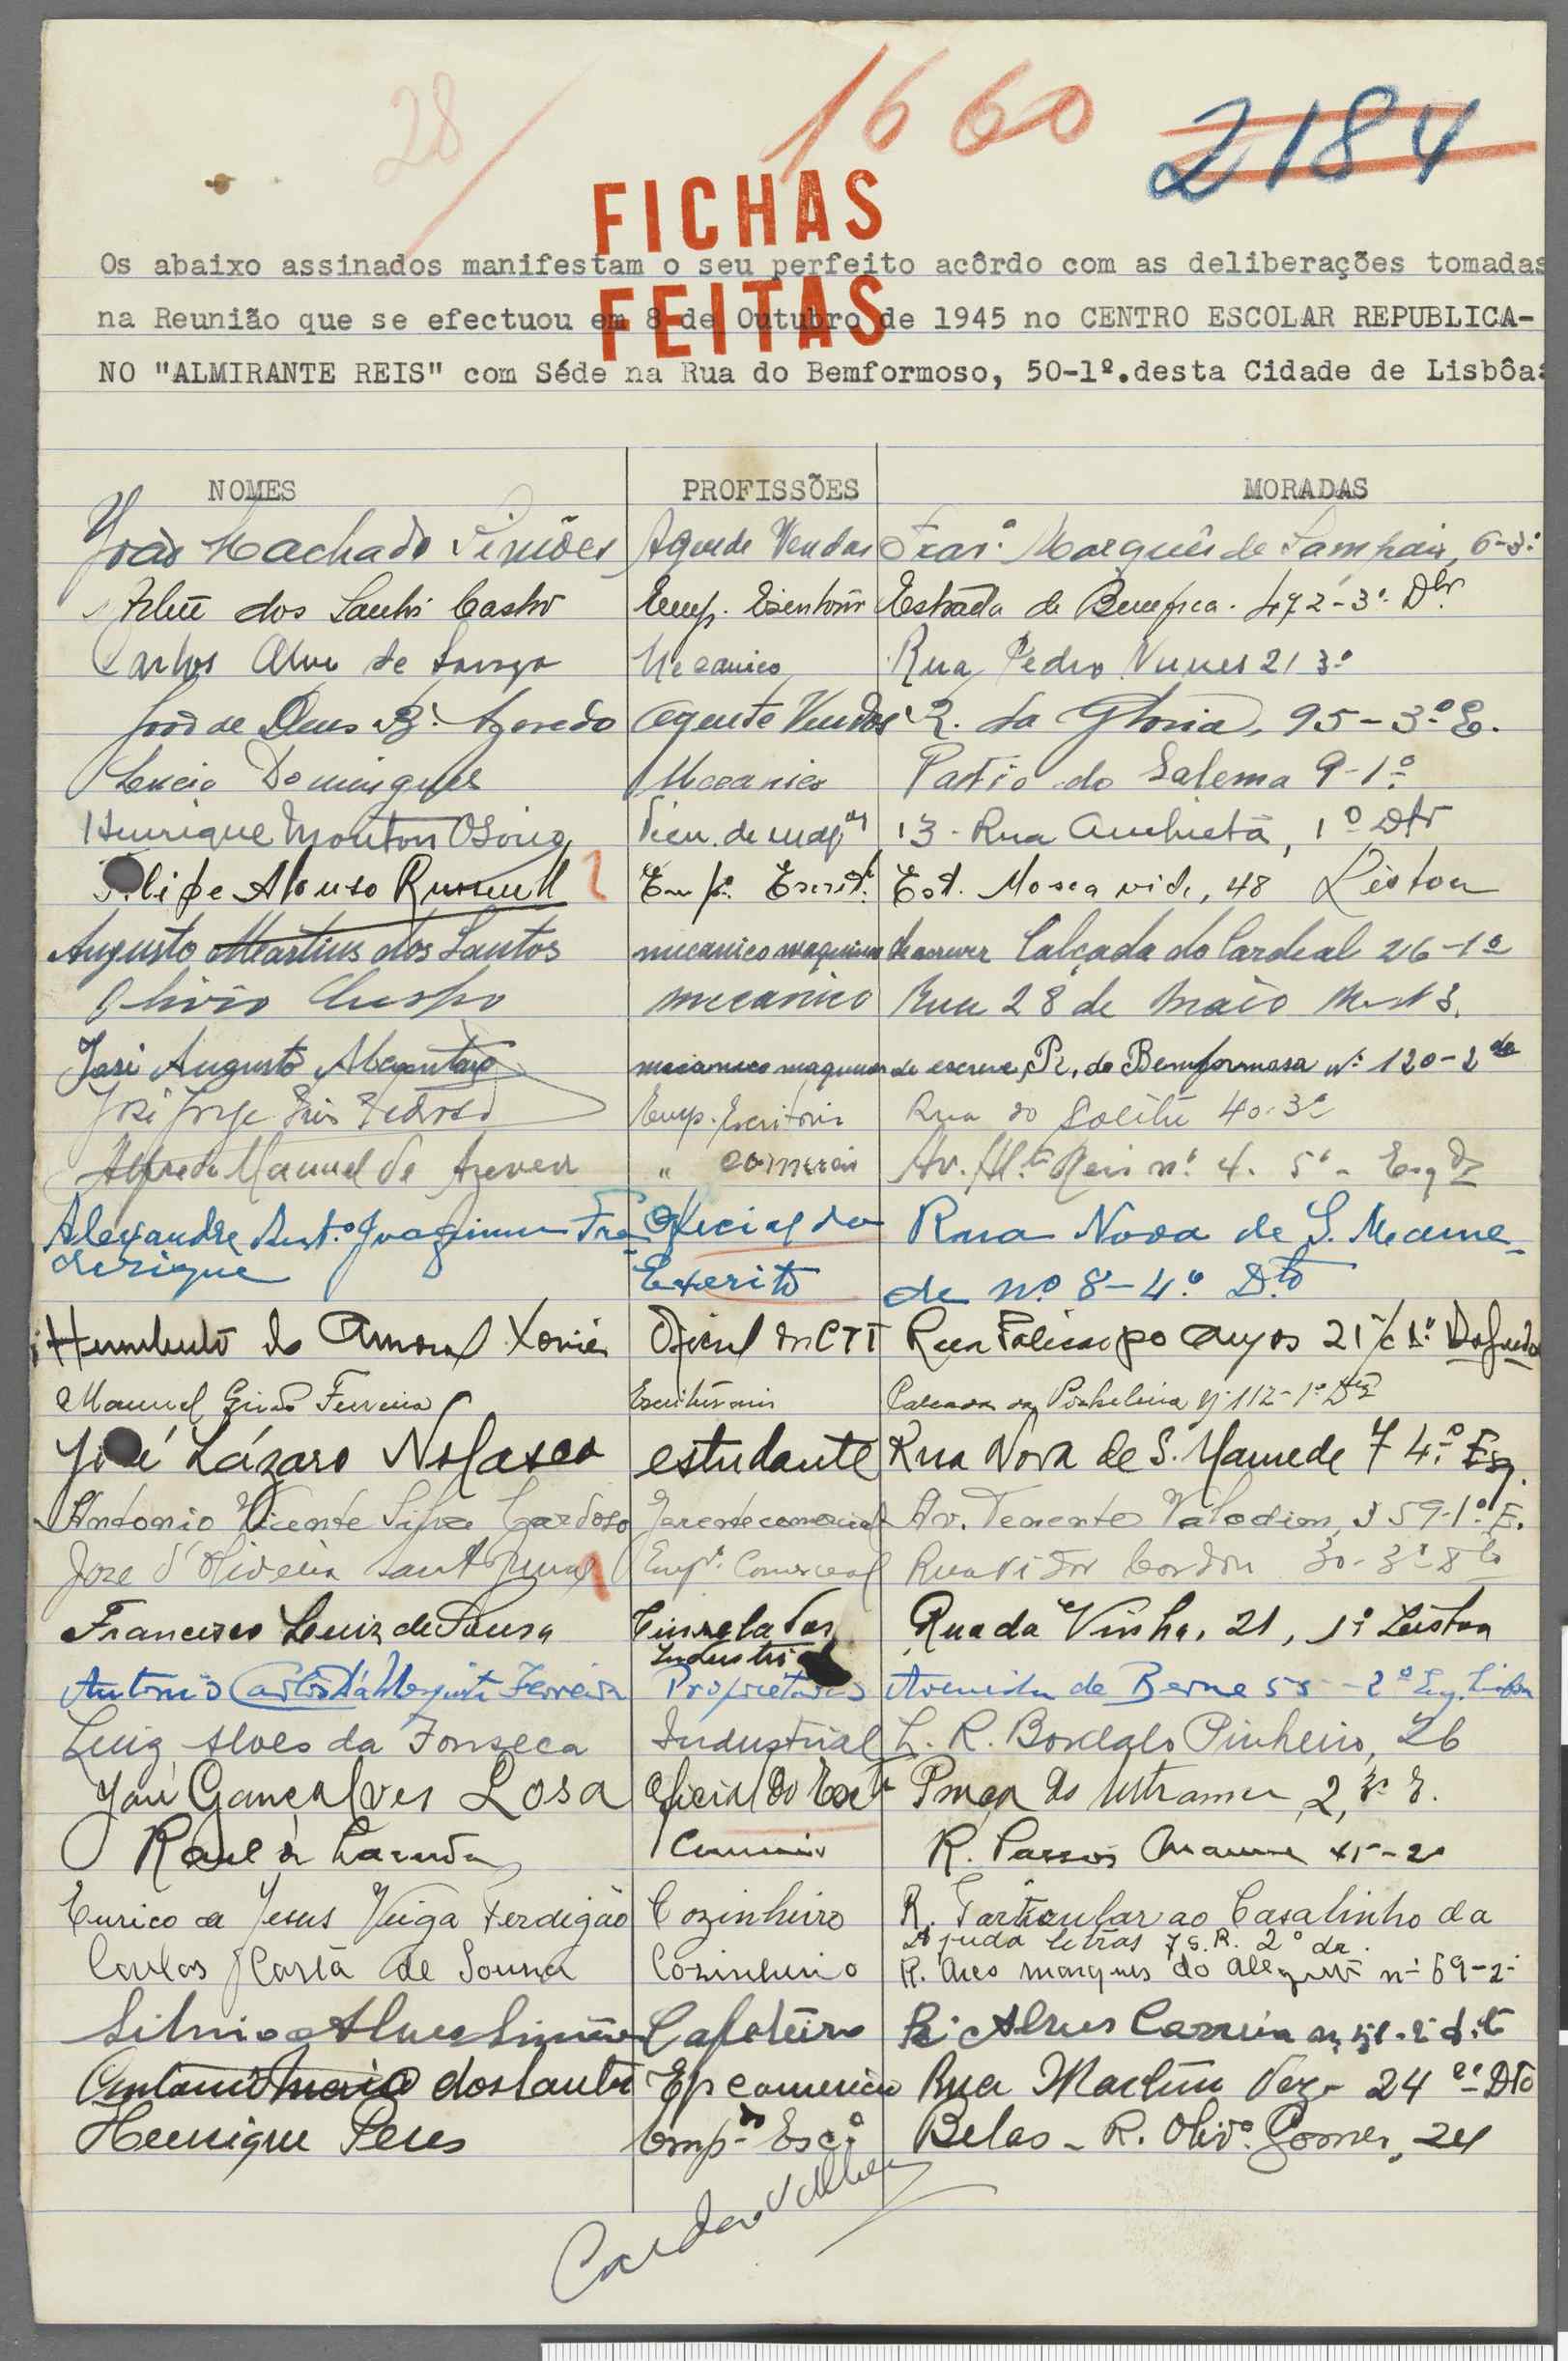 28
1660
2184
FICHAS
FEITAS
Os abaixo assinados manifestam o seu perfeito acôrdo com as deliberações tomadas
na Reunião que se efectuou em 8 de Outubro de 1945 no CENTRO ESCOLAR REPUBLICA-
NO "ALMIRANTE REIS" com Séde na Rua do Bemformoso, 50-1º.desta Cidade de Lisbôa:
NOMES PROFISSÕES MORADAS
João Machado Simões Agende Vendas Trav.ª Marquês de Sampaio, 6-3.º
dos Santos Castro Emp. Escritório Estrada de Benfica. 472-3º Dto.
Carlos Alves de Mecanico Rua Pedro Nunes 21 3º
João de Deus Azevedo Agente Vendas R. da Gloria, 95-3º E.
Domingues Mecanico Patio do Salema 9-1º
Henrique Mouton Osorio de 13-Rua Anchieta, 1º Dto
Filipe Afonso Emp. Escrit. Est. Moscavide, 48 Lisboa
Augusto Martins dos Santos mecanico maquinas de escrever Calçada do Cardeal 26-1º
Olivio mecanico Rua 28 de Maio
José Augusto mecanico maquinas de escrever, R. do Bemformoso nº 120-2º
José Jorge Pedroso Emp. Escritorio Rua do Salitre 40-3º
Alfredo Manuel de " comercio Av. Alte Reis nº 4. 5º- Esqº
Alexandre Joaquim Fre- Oficial do Rua Nova de S. Mame-
derique Exercito de nº 8-4º Dto
Humberto do Amaral Xavier Oficial dos CTT Rua
Manuel Ferreira Escriturario Calçada da nº 112-1º
José Lázaro Nolasco estudante Rua Nova de S. Mamede 7 4º Esq.
Antonio Vicente Silva Cardoso Gerente comercial Av. Tenente Valadim, 59-1º E.
Jose d'Oliveira Emp. Comercial Rua Vitor Cordon 30-3º
Francisco Luiz de Sousa Cinzelador Rua da Vinha, 21, 1º Lisboa
Industrial
Antonio Carlos Ferreira Proprietario Avenida de Berne 55-2º Esq. Lisboa
Luiz Alves da Fonseca Industrial L. R. Bordalo Pinheiro, 26
José Gonçalves Losa Oficial do Exto Praça do Ultramar 2, 3º E.
Raul de R. Passos Manuel
Eurico de Jesus Veiga Perdigão Cozinheiro R. Particular ao Casalinho da
Ajuda letras 7 G.R. 2º
Carlos Costa de Sousa Cozinheiro R. Arco marques do Alegrete nº 69-2º
Silvio Alves Simões Cafeteiro R. Alves Correia
Antonio Maria dos Santos Ep comercio Rua Martim Vaz 24 2º Dto
Henrique Peres Emp. Esc. Belas - R. Olivª Gomes, 24